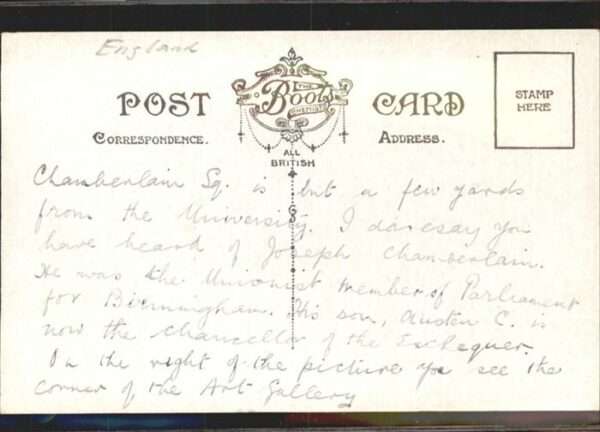 England
POST CARD
THE
Boots
CHEMISTS
STAMP
HERE
CORRESPONDENCE.
ADDRESS.
ALL
BRITISH
Chamberlain Sq. is but a few yards
from the University. I daresay you
have heard of Joseph Chamberlain.
He was the Unionist Member of Parliament
for Birmingham. His son, Austen C. is
now the chancellor of the Exchequer.
On the right of the picture you see the
corner of the Art Gallery